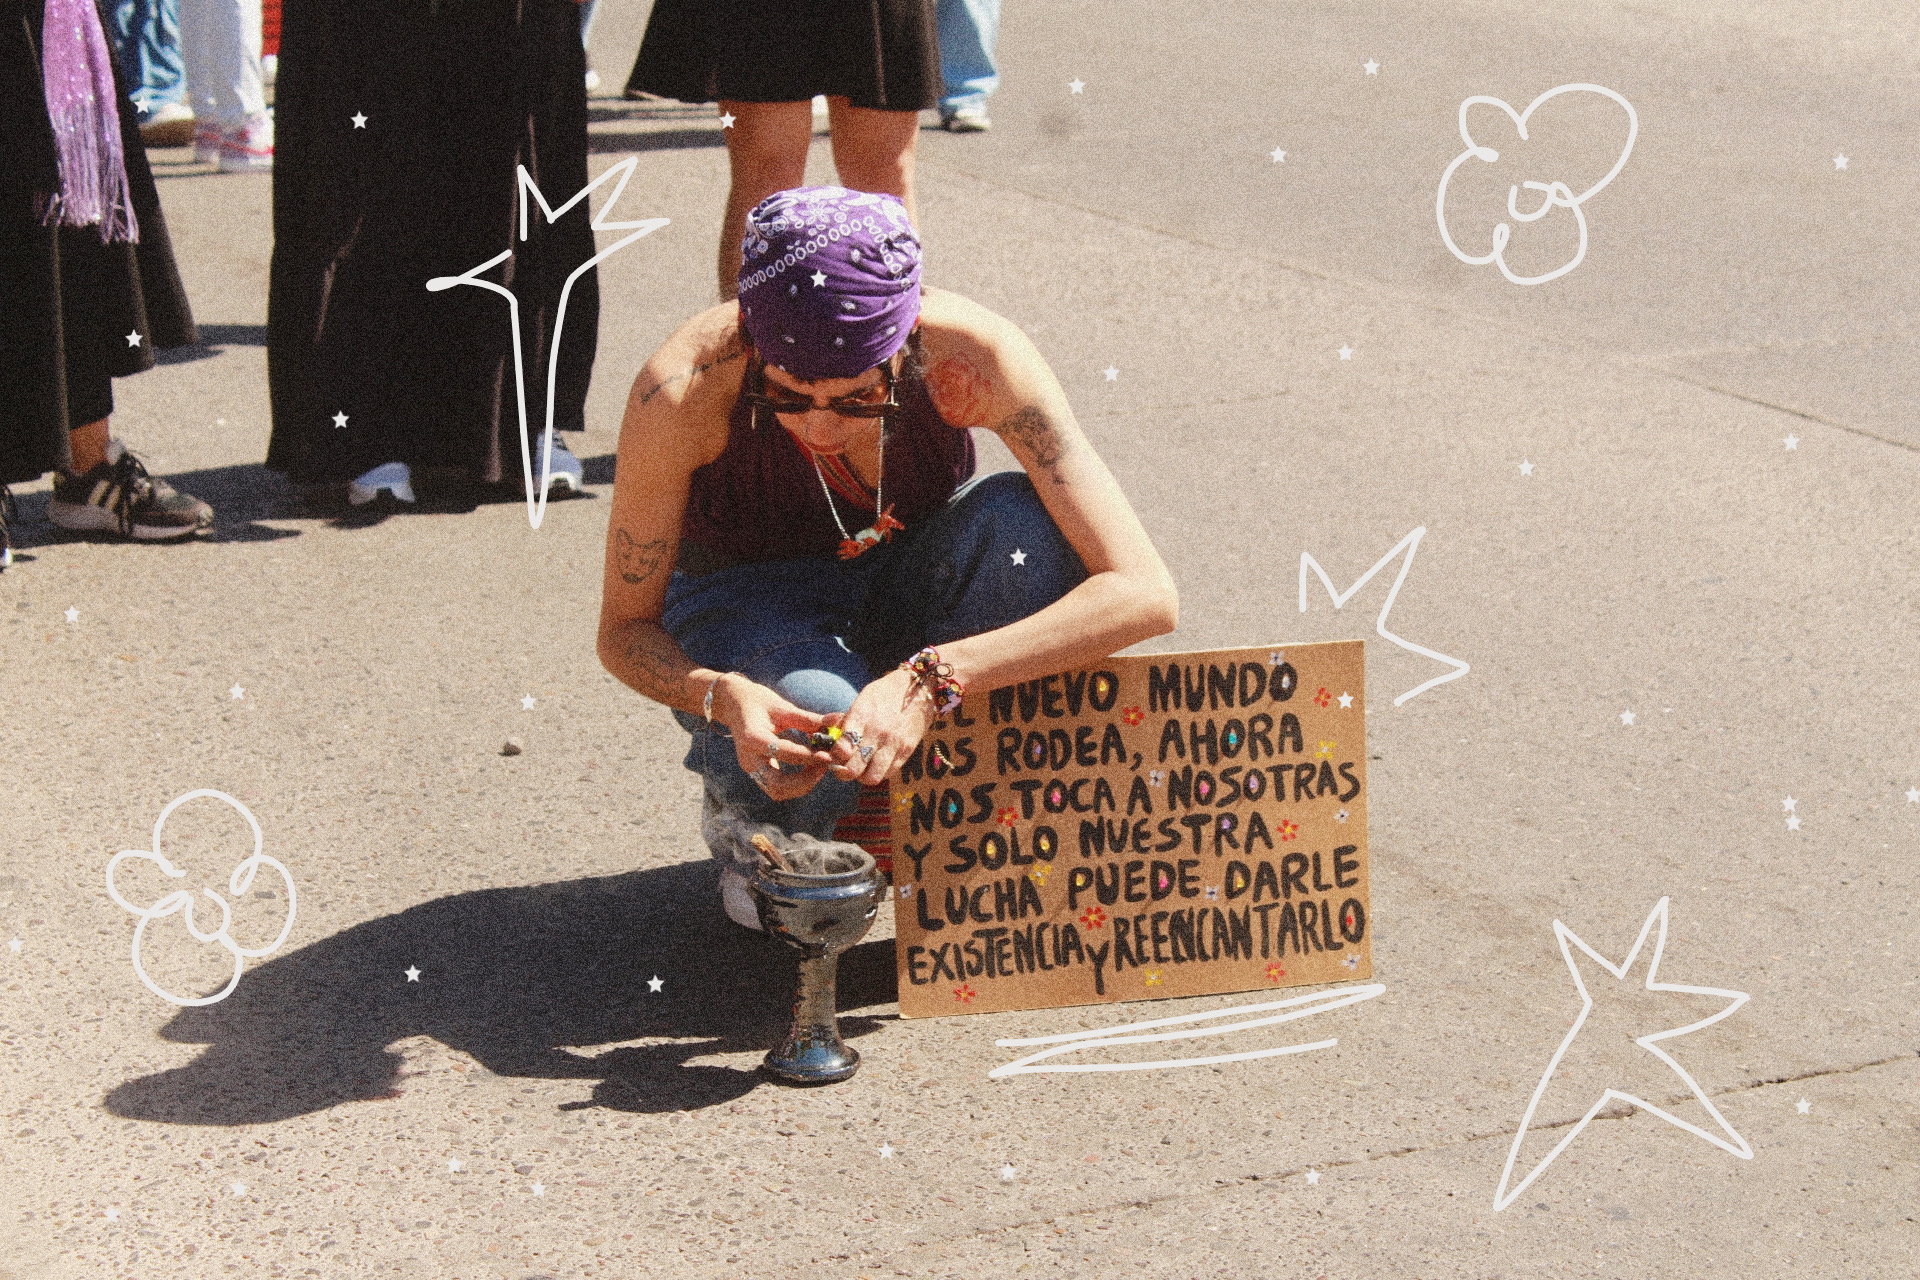 EL NUEVO MUNDO
NOS RODEA, AHORA
NOS TOCA A NOSOTRAS
Y SOLO NUESTRA
LUCHA PUEDE DARLE
EXISTENCIA Y REENCANTARLO